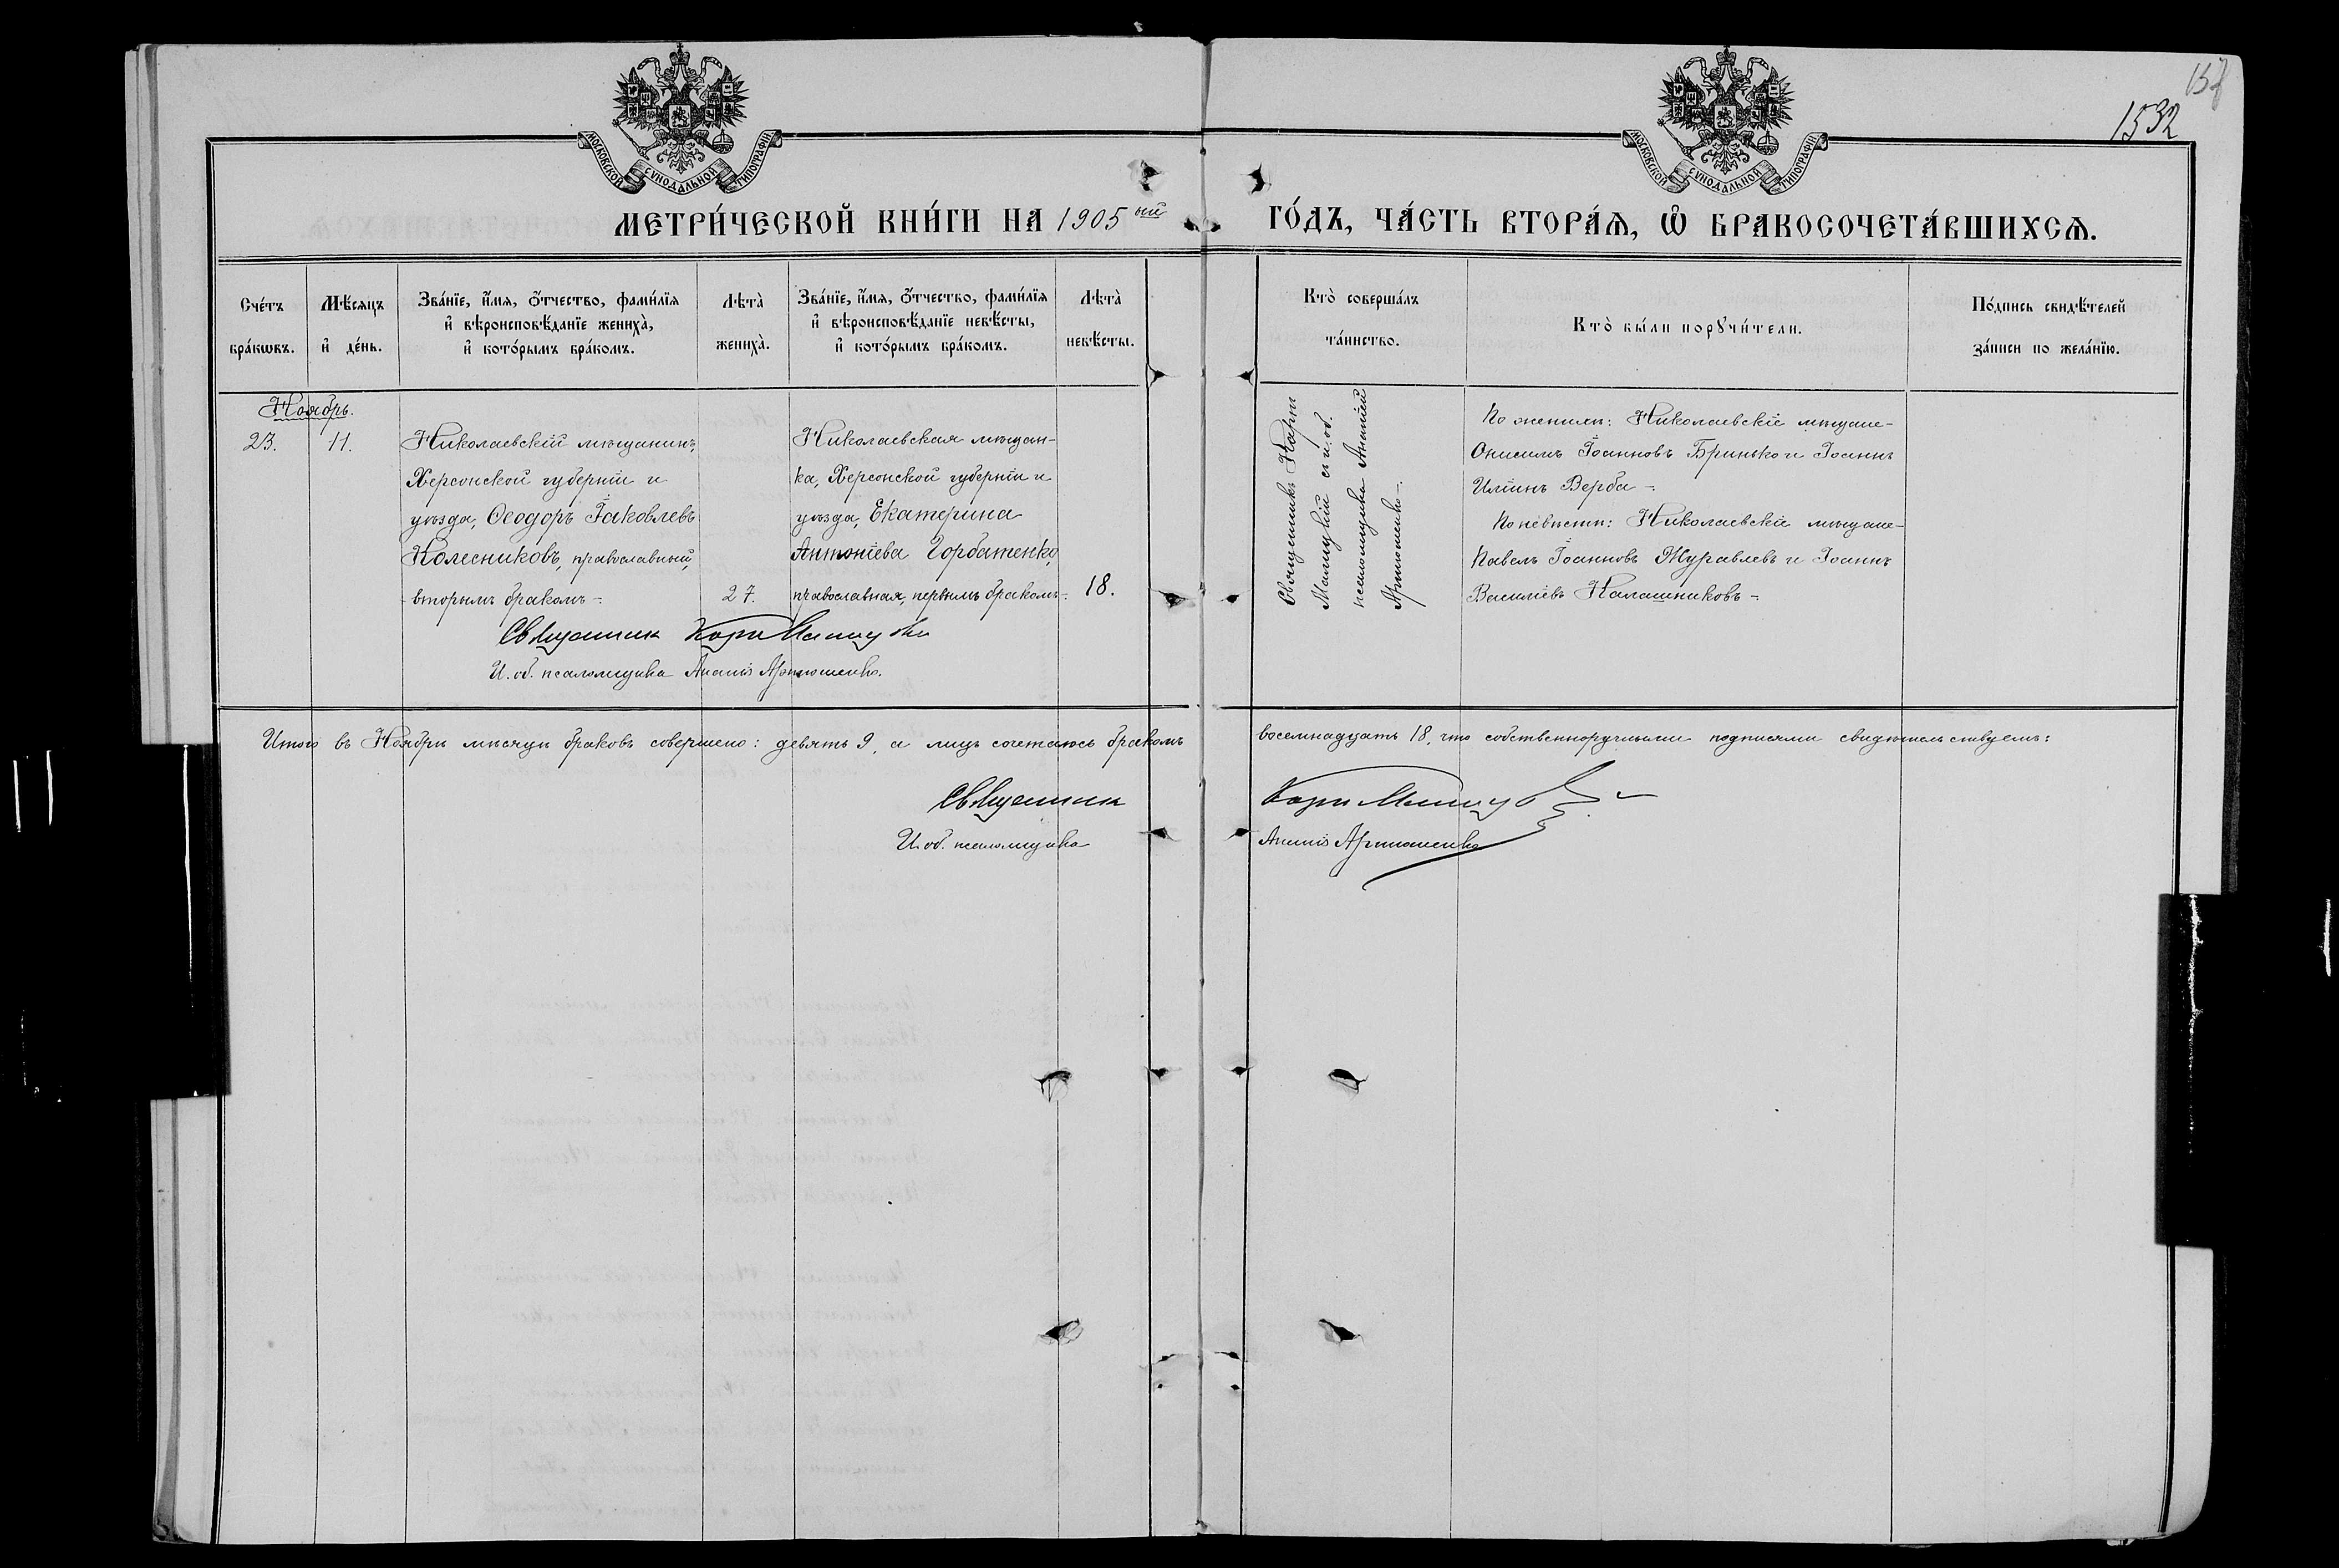 1532
МОСКОВСКОЙ СУНОДАЛЬНОЙ ТИПОГРАФІИ
МОСКОВСКОЙ СУНОДАЛЬНОЙ ТИПОГРАФІИ
МЕТРИ́ЧЕСКОЙ КНИ́ГИ НА 1905ый ГО́ДЪ, ЧА́СТЬ ВТОРА́Ѧ, Ѽ БРАКОСОЧЕТА́ВШИХСѦ.
Сче́тъ
бра́кѡвъ.
Мѣ́сяцъ
и҆ де́нь.
Зва́нїе, и҆́мѧ, ѻ҆́тчество, фами́лїѧ
и҆ вѣроисповѣ́данїе жениха̀,
и҆ кото́рымъ бра́комъ.
Лѣта̀
жениха̀.
Зва́нїе, и҆́мѧ, ѻ҆́тчество, фами́лїѧ
и҆ вѣроисповѣ́данїе невѣ́сты,
и҆ кото́рымъ бра́комъ.
Лѣта̀
невѣ́сты.
Кто̀ соверша́лъ
та́инство.
Кто̀ бы́ли порꙋчи́тели.
По́дпись свидѣ́телей
за́писи по жела́нїю.
Ноябрь.
23.
11.
Николаевскій мѣщанинъ,
Херсонской губерніи и
уѣзда, Ѳеодоръ Іаковлевъ
Колесниковъ, православный,
вторымъ бракомъ –
27.
Николаевская мѣщан-
ка, Херсонской губерніи и
уѣзда, Екатерина
Антоніева Горбатенко,
православная, первымъ бракомъ –
18.
Священникъ Карпъ
и.об.
псаломщика Ананій
Артюшенко –
По женихѣ: Николаевскіе мѣщане –
Онисимъ Іоанновъ Бринько и Іоаннъ
Иліинъ Верба –
По невѣстѣ: Николаевскіе мѣщане –
Павелъ Іоанновъ Журавлевъ и Іоаннъ
Василіевъ Калашниковъ –
Священникъ Карпъ
И. об. псаломщика Ананій Артюшенко.
Итого въ Ноябрѣ мѣсяцѣ браковъ совершено: девять 9, а лицъ сочеталось бракомъ восемнадцать 18, что собственноручными подписями свидѣтельствуемъ:
Священникъ Карпъ
И. об. псаломщика Ананій Артюшенко